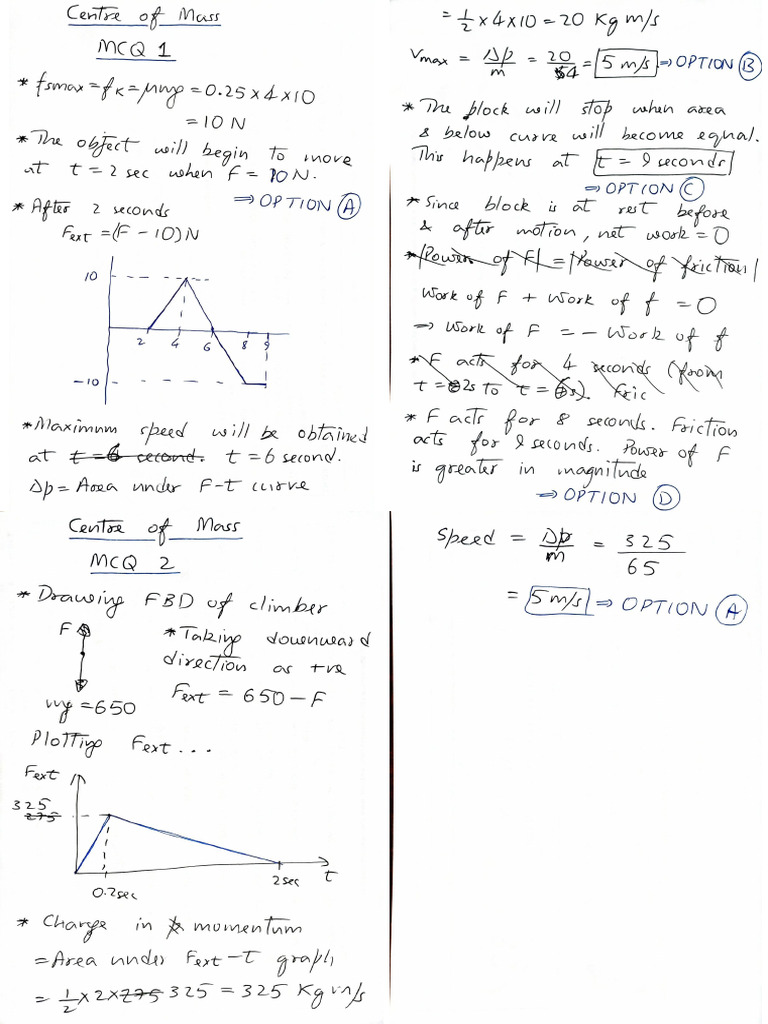 Centre of Mass
MCQ 1
* fsmax = fK = μmg = 0.25 × 4 × 10
= 10 N
* The object will begin to move
at t = 2 sec when F = 10 N.
⇒ OPTION (A)
* After 2 seconds
Fext = (F - 10) N
10
2 4 6 8 9
-10
* Maximum speed will be obtained
at t = 6 second. t = 6 second.
Δp = Area under F-t curve
= 1/2 × 4 × 10 = 20 Kg m/s
Vmax = Δp/m = 20/4 = 5 m/s ⇒ OPTION (B)
* The block will stop when area
& below curve will become equal.
This happens at t = 9 seconds
⇒ OPTION (C)
* Since block is at rest before
& after motion, net work = 0
* |Power of F| = |Power of friction|
Work of F + Work of f = 0
→ Work of F = - Work of f
* F acts for 4 seconds (from
t = 2s to t = 6s). Fric
* F acts for 8 seconds. Friction
acts for 9 seconds. Power of F
is greater in magnitude
⇒ OPTION (D)
Centre of Mass
MCQ 2
* Drawing FBD of climber
F
mg = 650
* Taking downward
direction as +ve
Fext = 650 - F
Plotting Fext...
Fext
325
275
0.2sec
2sec
t
* Change in momentum
= Area under Fext-T graph
= 1/2 × 2 × 275 325 = 325 Kg m/s
Speed = Δp/m = 325/65
= 5 m/s ⇒ OPTION (A)